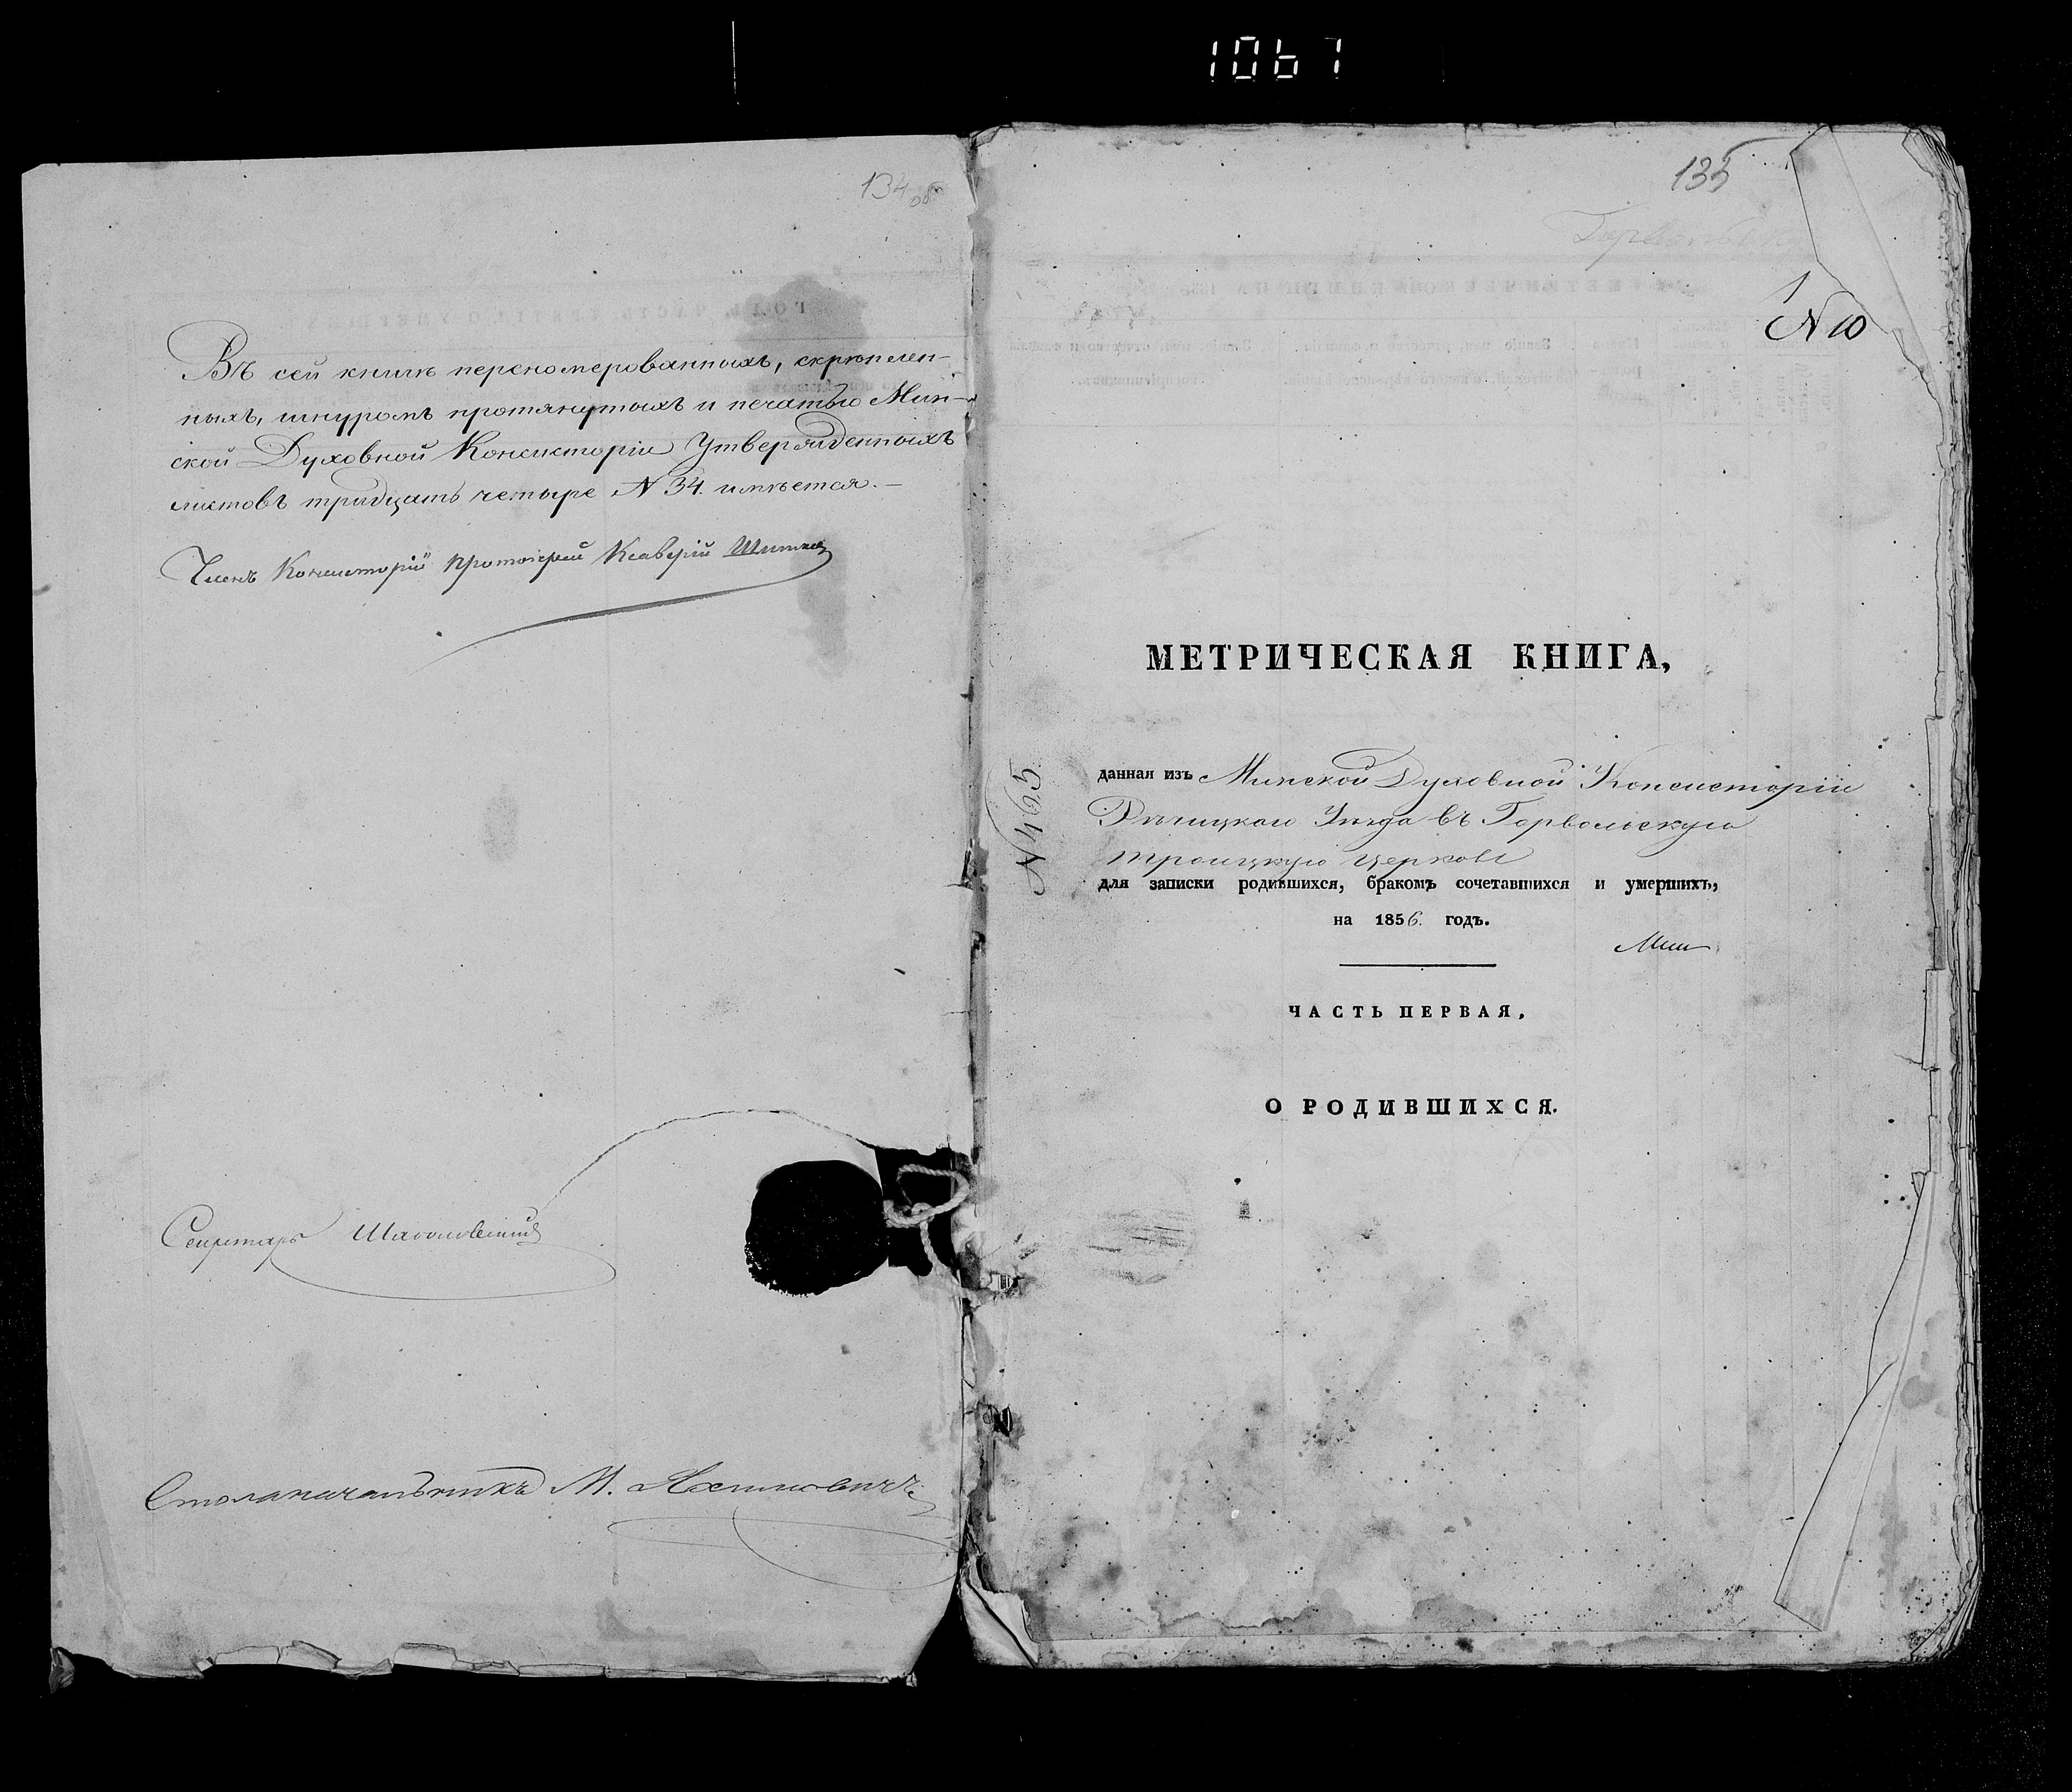 1067
134 об
Въ сей книгѣ перекомерованныхъ, скрѣплен-
ныхъ, шнуромъ протянутыхъ и печатью Мин-
ской Духовной Консисторіи Утвержденныхъ
листовъ тридцать четыре N 34. имѣется.—
Членъ Консисторіи Протоіерей Ксаверій
Секретарь
Столоначальникъ М.
135
N 10
МЕТРИЧЕСКАЯ КНИГА,
N 465
данная изъ Минской Духовной Консисторіи
Рѣчицкаго Уѣзда въ Горвольскую
троицкую церковь
для записки родившихся, бракомъ сочетавшихся и умершихъ,
на 1856. годъ.
Мин
ЧАСТЬ ПЕРВАЯ,
О РОДИВШИХСЯ.